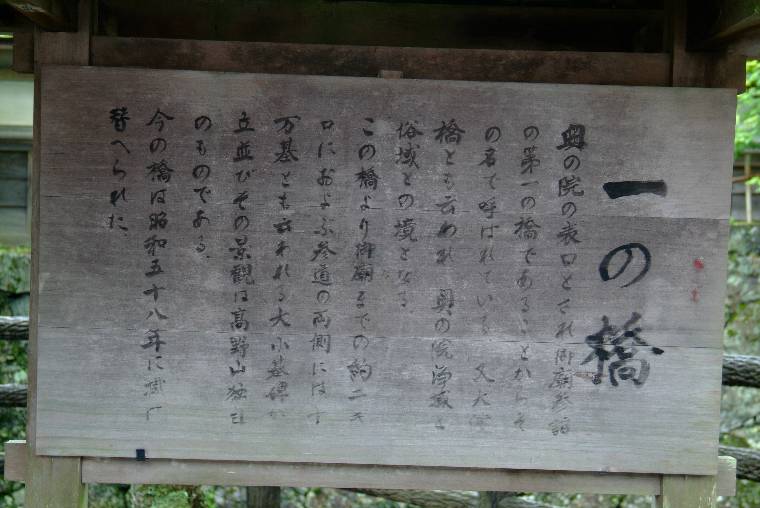 一の橋
奥の院の表口とされ御廟参詣
の第一の橋であることからそ
の名で呼ばれている 又大渡
橋とも云われ 奥の院浄域と
俗域との境となる
この橋より御廟までの約二キ
ロにおよぶ参道の両側には十
万基とも云われる大小墓碑が
立並びその景観は高野山独自
のものである
今の橋は昭和五十八年に
替へられた